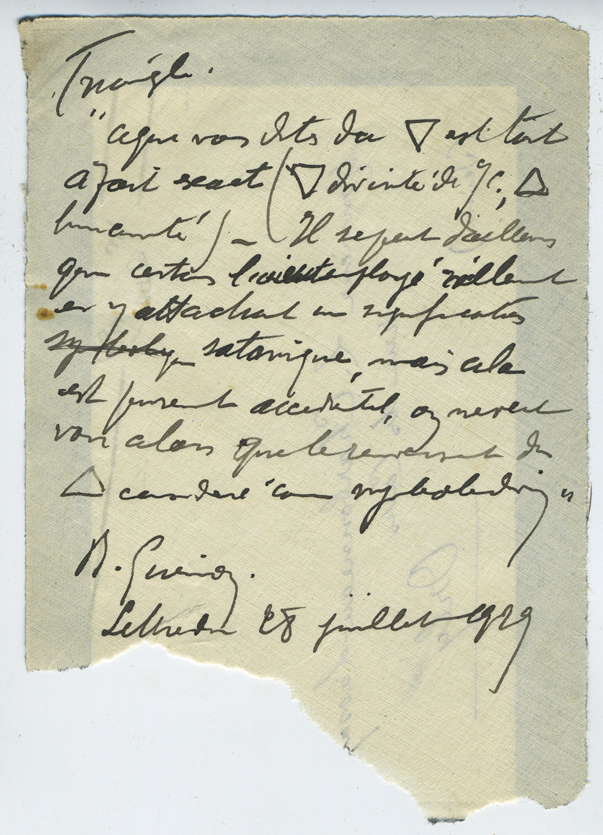 Triangle.
"ce que vous dites du ▽ est tout
à fait exact (▽ divinité de J.C., △
humanité) – Il se peut d'ailleurs
que certains l'aient employé réellement
en y attachant une signification
satanique, mais cela
est purement accidentel, on ne veut
voir alors que le renversement du
△ considéré comme symbole divin"
R. Guénon.
Lettre du 28 juillet 1929